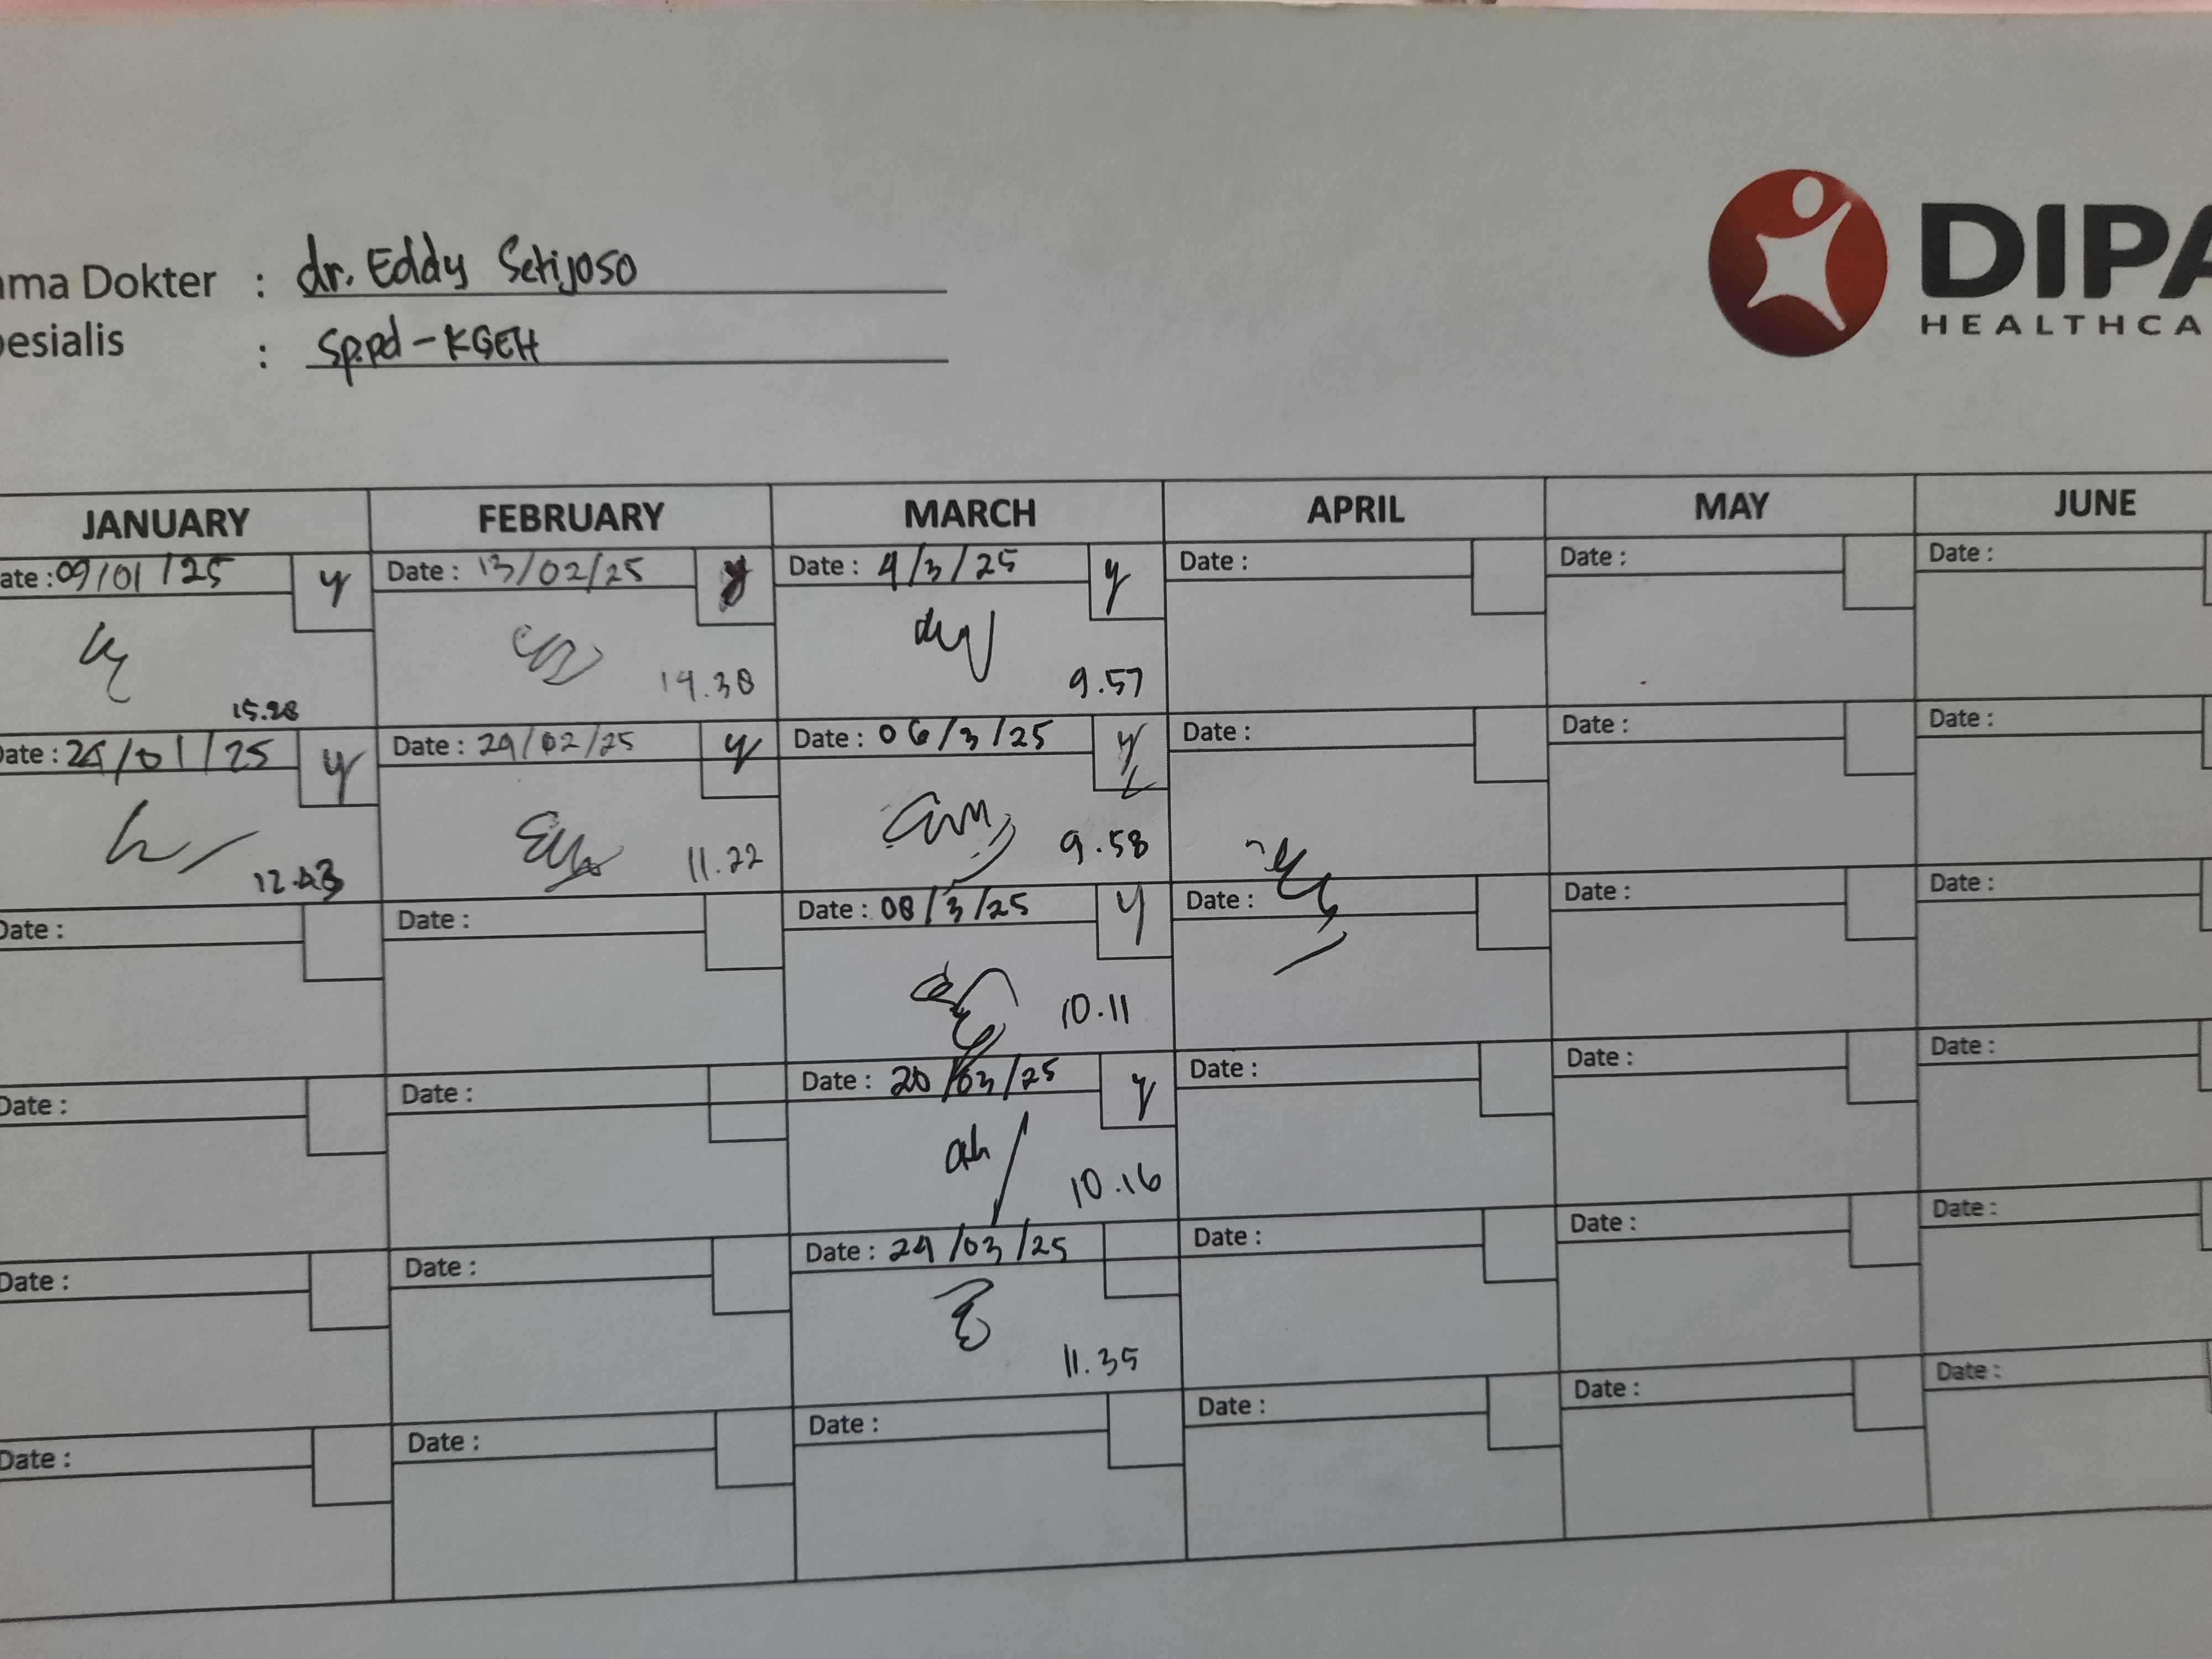 ama Dokter : dr. Eddy Setijoso
esialis : Sp.pd - KGEH
DIPA
HEALTHCA
JANUARY FEBRUARY MARCH APRIL MAY JUNE
ate : 09/01/25 y Date : 13/02/25 y Date : 4/3/25 y Date : Date : Date :
15.28 14.38 9.57
Date : 24/01/25 y Date : 24/02/25 y Date : 06/3/25 y Date : Date : Date :
12.43 11.22 9.58
Date : Date : Date : 08/3/25 y Date : Date : Date :
10.11
Date : Date : Date : 20/03/25 y Date : Date : Date :
10.16
Date : Date : Date : 24/03/25 Date : Date : Date :
11.35
Date : Date : Date : Date : Date : Date :